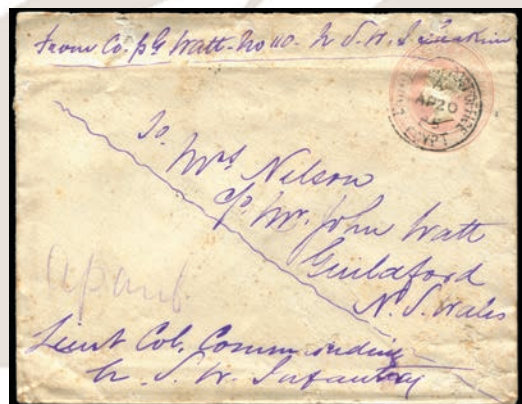 from Co. pl G Watt - No 110 - N. S. W. S.
AP 20
85
EGYPT
To
Mrs Nelson
C/o Mr. John Watt
Guildford
N. S. Wales
Lieut Col. Commanding
N. S. W. Infantry